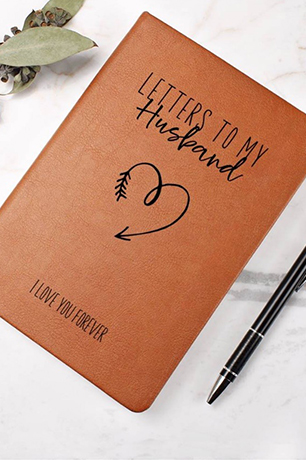 LETTERS TO MY
Husband
I LOVE YOU FOREVER